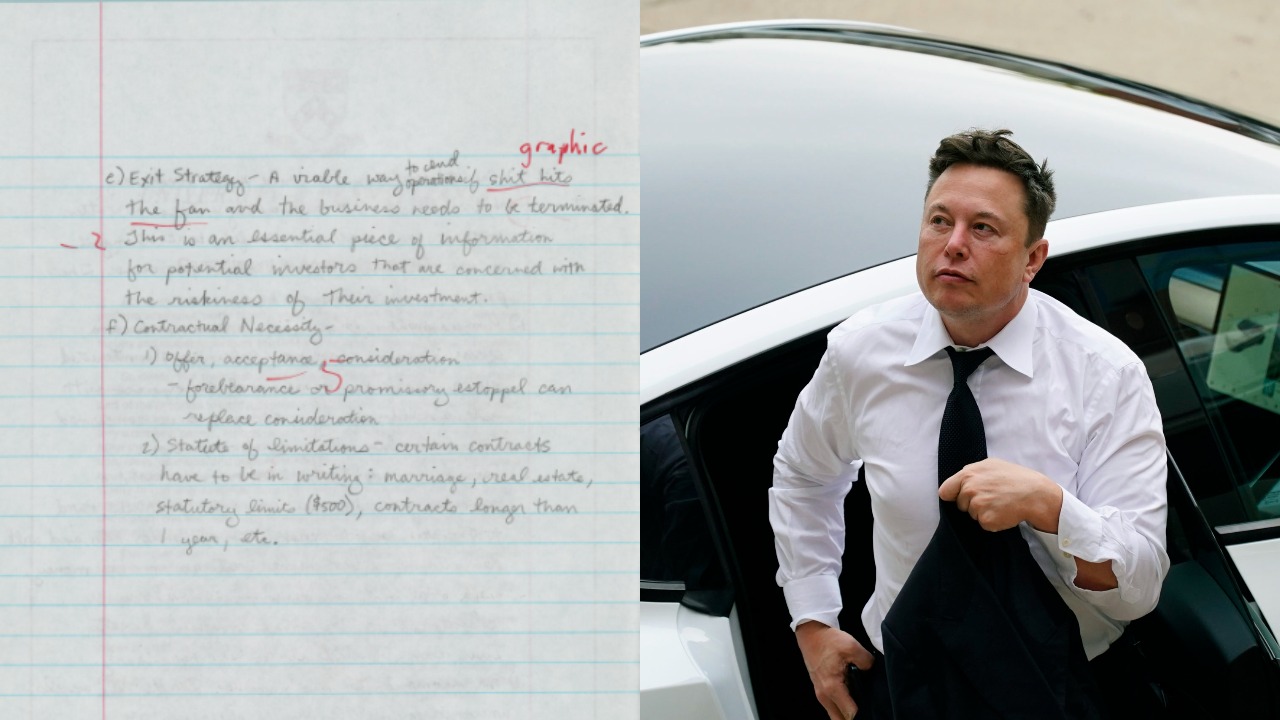 graphic
e) Exit Strategy - A viable way to end operations if shit hits
the fan and the business needs to be terminated.
-2 This is an essential piece of information
for potential investors that are concerned with
the riskiness of their investment.
f) Contractual Necessity -
1) Offer, acceptance, consideration
- forebearance or promissory estoppel can
replace consideration
2) Statute of limitations - certain contracts
have to be in writing: marriage, real estate,
statutory limits ($500), contracts longer than
1 year, etc.